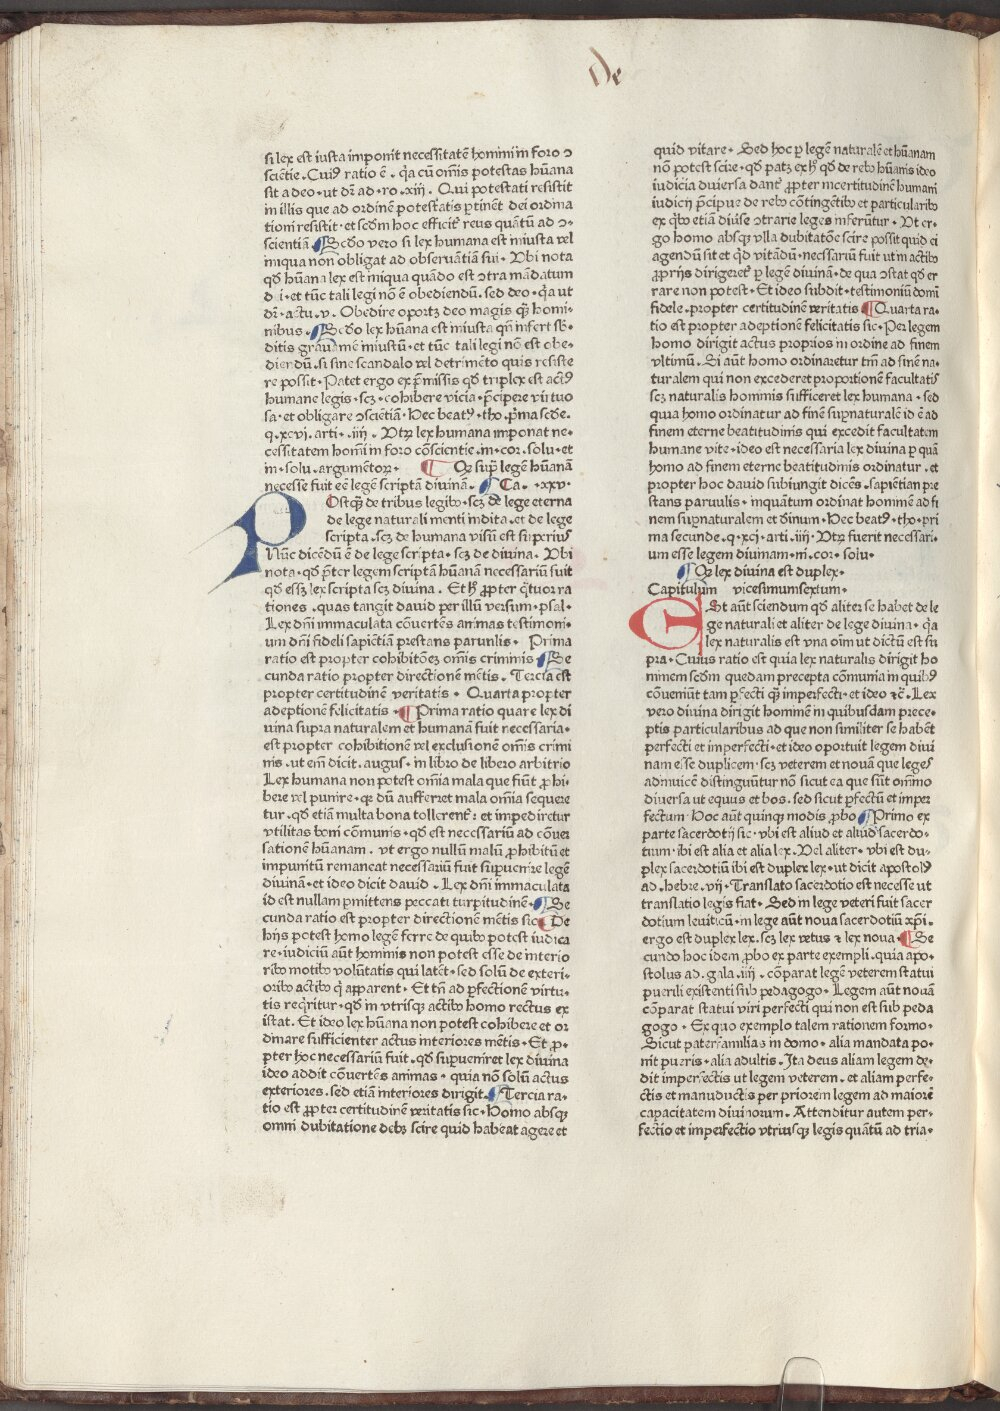 De
si lex est iusta imponit necessitatē homini in foro ↄ
scientie. Cuiꝰ ratio ē . q̇a cū om̄is potestas hūana
sit a deo. ut dr̄ ad. ro. xiij. Qui potestati resistit
in illis que ad ordinē potestatis ꝑtinēt dei ordina
tioni resistit. et scd̄m hoc efficit̄ reus quātū ad ↄ-
scientiā ¶ Scd̄o vero si lex humana est iniusta vel
iniqua non obligat ad observātiā sui. Vbi nota
qd̄ hūana lex est iniqua quādo est ↄtra mādatum
dei. et tūc tali legi nō ē obediendū. sed deo. q̇a ut
dr̄. actu. v. Obedire oportꝫ deo magis q̄ꝫ homi-
nibus. ¶ Scd̄o lex hūana est iniusta qn̄ infert sb̄-
ditis gravamē iniustū. et tūc tali legi nō est obe-
diendū. si sine scandalo vel detrimēto quis resiste
re possit. Patet ergo ex p̄missis qd̄ triplex est actꝰ
humane legis. scꝫ. cohibere vicia. p̄cipere virtuo
sa. et obligare ↄscientiā. Hec beatꝰ. tho. p̄ma scd̄e.
q. xcvi. arti. iiij. Vtꝝ lex humana imponat ne-
cessitatem homi̅ in foro cōscientie. in. cor. solu. et
in. solu. argumētoꝝ. ¶ Qꝫ sup̄ legē hūanā
necesse fuit eē legē scriptā divinā. ¶ Ca. .xxv.
POstq̄ꝫ de tribus legibꝰ. scꝫ de lege eterna
de lege naturali menti indita. et de lege
scripta. scꝫ de humana visū est superiꝰ
Nūc dicēdū ē de lege scripta. scꝫ de divina. Vbi
nota. qd̄ p̄ter legem scriptā hūanā necessariū fuit
qd̄ essꝫ lex scripta scꝫ divina. Et h̄ ꝓpter q̇tuor ra
tiones. quas tangit david per illū versum. psal.
Lex dn̄i immaculata cōvertēs animas testimoni-
um dn̄i fideli sapiētiā prestans parvulis. Prima
ratio est propter cohibitōeꝫ om̄is criminis ¶ Se
cunda ratio propter directionē mētis. Tercia est
propter certitudinē veritatis. Quarta propter
adeptionē felicitatis. ¶ Prima ratio quare lex di
vina supra naturalem et humanā fuit necessaria.
est propter cohibitionē vel exclusionē om̄is crimi
nis. ut em̄ dicit. augus. in libro de libero arbitrio
Lex humana non potest om̄ia mala que fiūt ꝓhi-
bere vel punire. qꝫ dū aufferret mala om̄ia sequere
tur. qd̄ etiā multa bona tollerent̄: et impediretur
vtilitas boni cōmunis. qd̄ est necessariū ad cōver
sationē hūanam. vt ergo nullū malū ꝓhibitū et
impunitū remaneat necessariū fuit supvenire legē
divinā. et ideo dicit david. Lex dn̄i immaculata
id est nullam ꝑmittens peccati turpitudinē. ¶ Se
cunda ratio est propter directionē mētis sic ¶ De
hijs potest homo legē ferre de quibꝰ potest iudica
re. iudiciū autē hominis non potest esse de interio
ribꝰ motibꝰ volūtatis qui latēt. sed solū de exteri-
oribꝰ actibꝰ q̇ apparent. Et tn̄ ad ꝑfectionē virtu-
tis req̇ritur. qd̄ in vtrisqꝫ actibꝰ homo rectus ex
istat. Et ideo lex hūana non potest cohibere et or
dinare sufficienter actus interiores mētis. Et ꝓ-
pter hoc necessariū fuit. qd̄ supveniret lex divina
ideo addit cōvertēs animas. quia nō solū actus
exteriores. sed etiā interiores dirigit. ¶ Tercia ra-
tio est ꝓpter certitudinē veritatis sic. Homo absqꝫ
omni dubitatione debꝫ scire quid habeat agere et
quid vitare. Sed hoc ꝑ legē naturalē et hūanam
nō potest scire. qd̄ patꝫ ex h̄ qd̄ de rebꝰ hūanis ideo
iudicia diversa dant̄ ꝓpter incertitudinē humani
iudicij p̄cipue de rebꝰ cōtingētibꝰ et particularibꝰ
ex q̇bꝰ etiā div̄se ↄtrarie leges inferūtur. Vt er-
go homo absqꝫ vlla dubitatōe scire possit quid ei
agendū sit et qd̄ vitādū. necssariū fuit ut in actibꝰ
ꝓprijs dirigeret̄ ꝑ legē divinā. de qua ↄstat qd̄ er
rare non potest. Et ideo subdit. testimoniū domī
fidele. propter certitudinē veritatis ¶ Quarta ra-
tio est propter adeptionē felicitatis sic. Per legem
homo dirigit actus proprios in ordine ad finem
vltimū. Si autē homo ordinaretur tm̄ ad finē na-
turalem qui non excederet proportionē facultatis
scꝫ naturalis hominis sufficeret lex humana. sed
quia homo ordinatur ad finē supnaturalē id ē ad
finem eterne beatitudinis qui excedit facultatem
humane vite. ideo est necessaria lex divina ꝑ quā
homo ad finem eterne beatitudinis ordinatur. et
propter hoc david subiungit dicēs. sapientian pre
stans parvulis. inquātum ordinat hominē ad fi
nem supnaturalem et divinum. Hec beatꝰ. tho. pri
ma secunde. q. xcj. arti. iiij. Vtꝝ fuerit necessari-
um esse legem divinam. in. cor. solu.
¶ Qꝫ lex divina est duplex.
Capitulum vicesimumsextum.
ESt autē sciendum qd̄ aliter se habet de le
ge naturali et aliter de lege divina. q̇a
lex naturalis est vna oīm ut dictū est su
pra. Cuius ratio est quia lex naturalis dirigit ho
minem scd̄m quedam precepta cōmunia in quibꝰ
cōveniūt tam ꝑfecti q̄ꝫ imperfecti. et ideo ⁊c̄. Lex
vero divina dirigit hominē in quibusdam prece-
ptis particularibus ad que non similiter se habēt
perfecti et imperfecti. et ideo oportuit legem divi
nam esse duplicem. scꝫ veterem et novā que leges
adinvicē distinguūtur nō sicut ea que sūt omīno
diversa ut equus et bos. sed sicut ꝑfectū et imper
fectum. Hoc autē quinqꝫ modis ꝓbo ¶ Primo ex
parte sacerdotij sic. vbi est aliud et aliud sacerdo-
tium. ibi est alia et alia lex. Vel aliter. vbi est du-
plex sacerdotiū ibi est duplex lex. ut dicit apostolꝰ
ad. hebre. vij. Translato sacerdotio est necesse ut
translatio legis fiat. Sed in lege veteri fuit sacer
dotium leviticū. in lege autē nova sacerdotiū xp̄i.
ergo est duplex lex. scꝫ lex vetus ⁊ lex nova. ¶ Se
cundo hoc idem ꝓbo ex parte exempli. quia apo-
stolus ad. gala. iiij. cōparat legē veterem statui
puerili existenti sub pedagogo. Legem autē novā
cōparat statui viri perfecti qui non est sub peda
gogo. Ex quo exemplo talem rationem formo.
Sicut paterfamilias in domo. alia mandata po-
nit pueris. alia adultis. Ita deus aliam legem de-
dit imperfectis ut legem veterem. et aliam perfe-
ctis et manuductis per priorem legem ad maiorē
capacitatem divinorum. Attenditur autem per-
fectio et imperfectio vtriusqꝫ legis quātū ad tria-